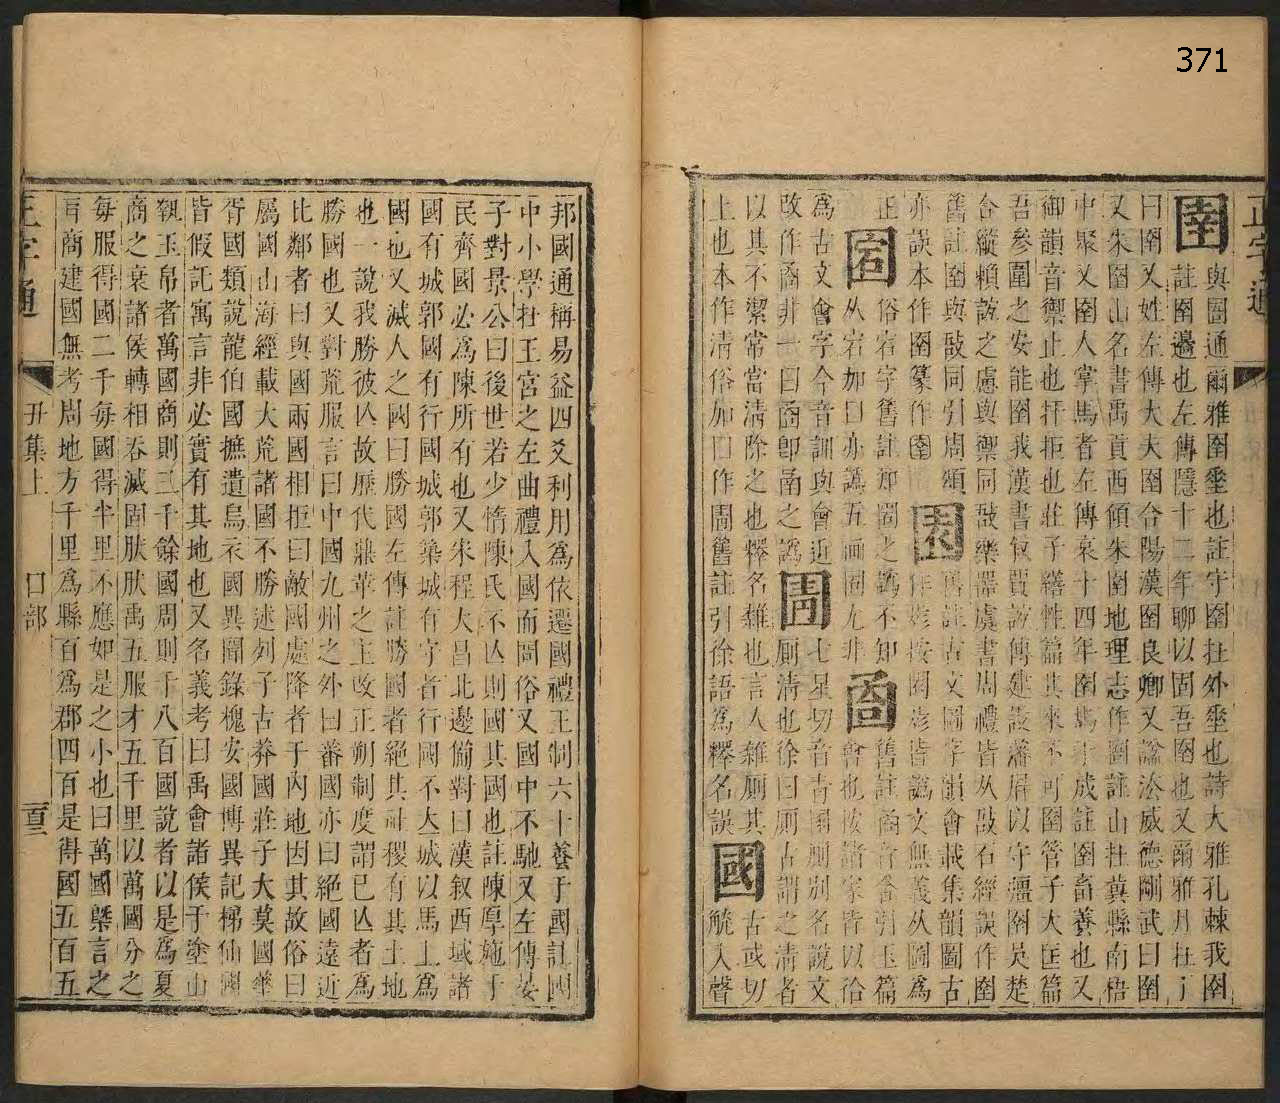 371
正字通
圉 與圄通爾雅圉垂也註守圉在外垂也詩大雅孔棘我圉
註圉邊也左傳隱十二年聊以固吾圉也又爾雅月在丁
曰圉又姓左傳大夫圉公陽漢圉良卿又諡法威德剛武曰圉
又朱圉山名書禹貢西傾朱圉地理志作圄註山在冀縣南梧
中聚又圉人掌馬者左傳哀十四年圉馬于成註圉畜養也又
御韻音禦止也扞拒也莊子繕性篇其來不可圉管子大匡篇
吾參圍之安能圉我漢書叙賈誼傳建設藩屏以守疆圉吳楚
合縱賴誼之慮與禦同敔樂器虞書周禮皆从敔石經誤作圉
舊註圉與敔同引周頌 舊註古文圖字韻會載集韻圖古
亦誤本作圉篆作圉 作 按圖 皆譌文無義从圖為
正 俗 字舊註 之譌不知 舊註 音 引玉篇
从宕加口亦譌五 圄尤非 會也按諸家皆以㑹
為古文會字今音訓與會近 七星切音 圊廁別名說文
改作 非一曰 卽 之譌 廁清也徐曰廁古謂之清者
以其不潔常當清除之也釋名雜也言人雜廁其
上也本作清俗加囗作圊舊註引徐語為釋名誤 國 古或切
觥入聲
邦國通稱易益四爻利用為依遷國禮王制六十養于國註國
中小學在王宮之左曲禮入國而問俗又國中不馳又左傳晏
子對景公曰後世若少惰陳氏不亾則國其國也註陳厚施于
民齊國必為陳所有也又宋程大昌北邊備對曰漢叙西域諸
國有城郭國有行國城郭築城有守者行國不立城以馬上為
國也又滅人之國曰勝國左傳註勝國者絕其社稷有其土地
也一說我勝彼亾故歷代鼎革之主改正朔制度謂已亾者為
勝國也又對荒服言曰中國九州之外曰蕃國亦曰絕國遠近
比鄰者曰與國兩國相拒曰敵國處降者于內地因其故俗曰
屬國山海經載大荒諸國不勝述列子古莽國莊子大莫國華
胥國類說龍伯國摭遺烏衣國異聞錄槐安國博異記梯仙國
皆假託寓言非必實有其地也又名義考曰禹會諸侯于塗山
執玉帛者萬國商則三千餘國周則千八百國說者以是為夏
商之衰諸侯轉相吞滅固肰肰禹五服才五千里以萬國分之
每服得國二千每國得半里不應如是之小也曰萬國槩言之
商建國無考周地方千里為縣百為郡四百是得國五百五
正字通
丑集上
口部